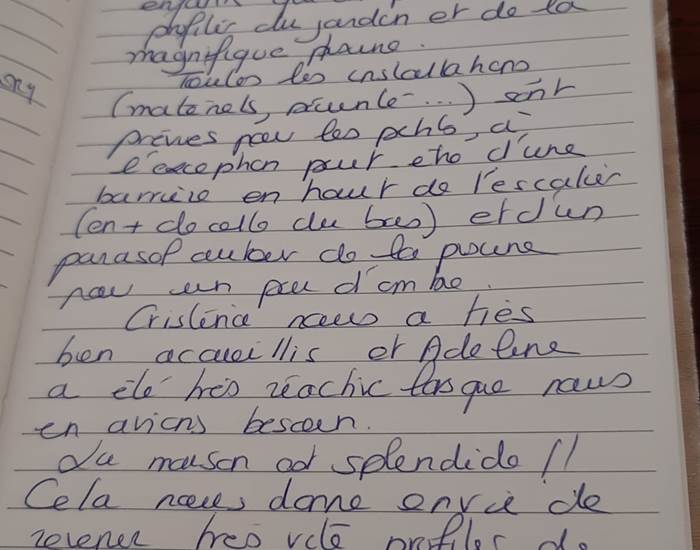 profiter du jardin et de la
magnifique piscine.
Toutes les installations
(matériels, sécurité...) sont
prévues pour les petits, à
l'exception peut etre d'une
barrière en haut de l'escalier
(en + de celle du bas) et d'un
parasol autour de la piscine
pour un peu d'ombre.
Cristina nous a très
bien accueillis et Adeline
a été très réactive lorsque nous
en avions besoin.
La maison est splendide !!
Cela nous donne envie de
revenir très vite profiter de